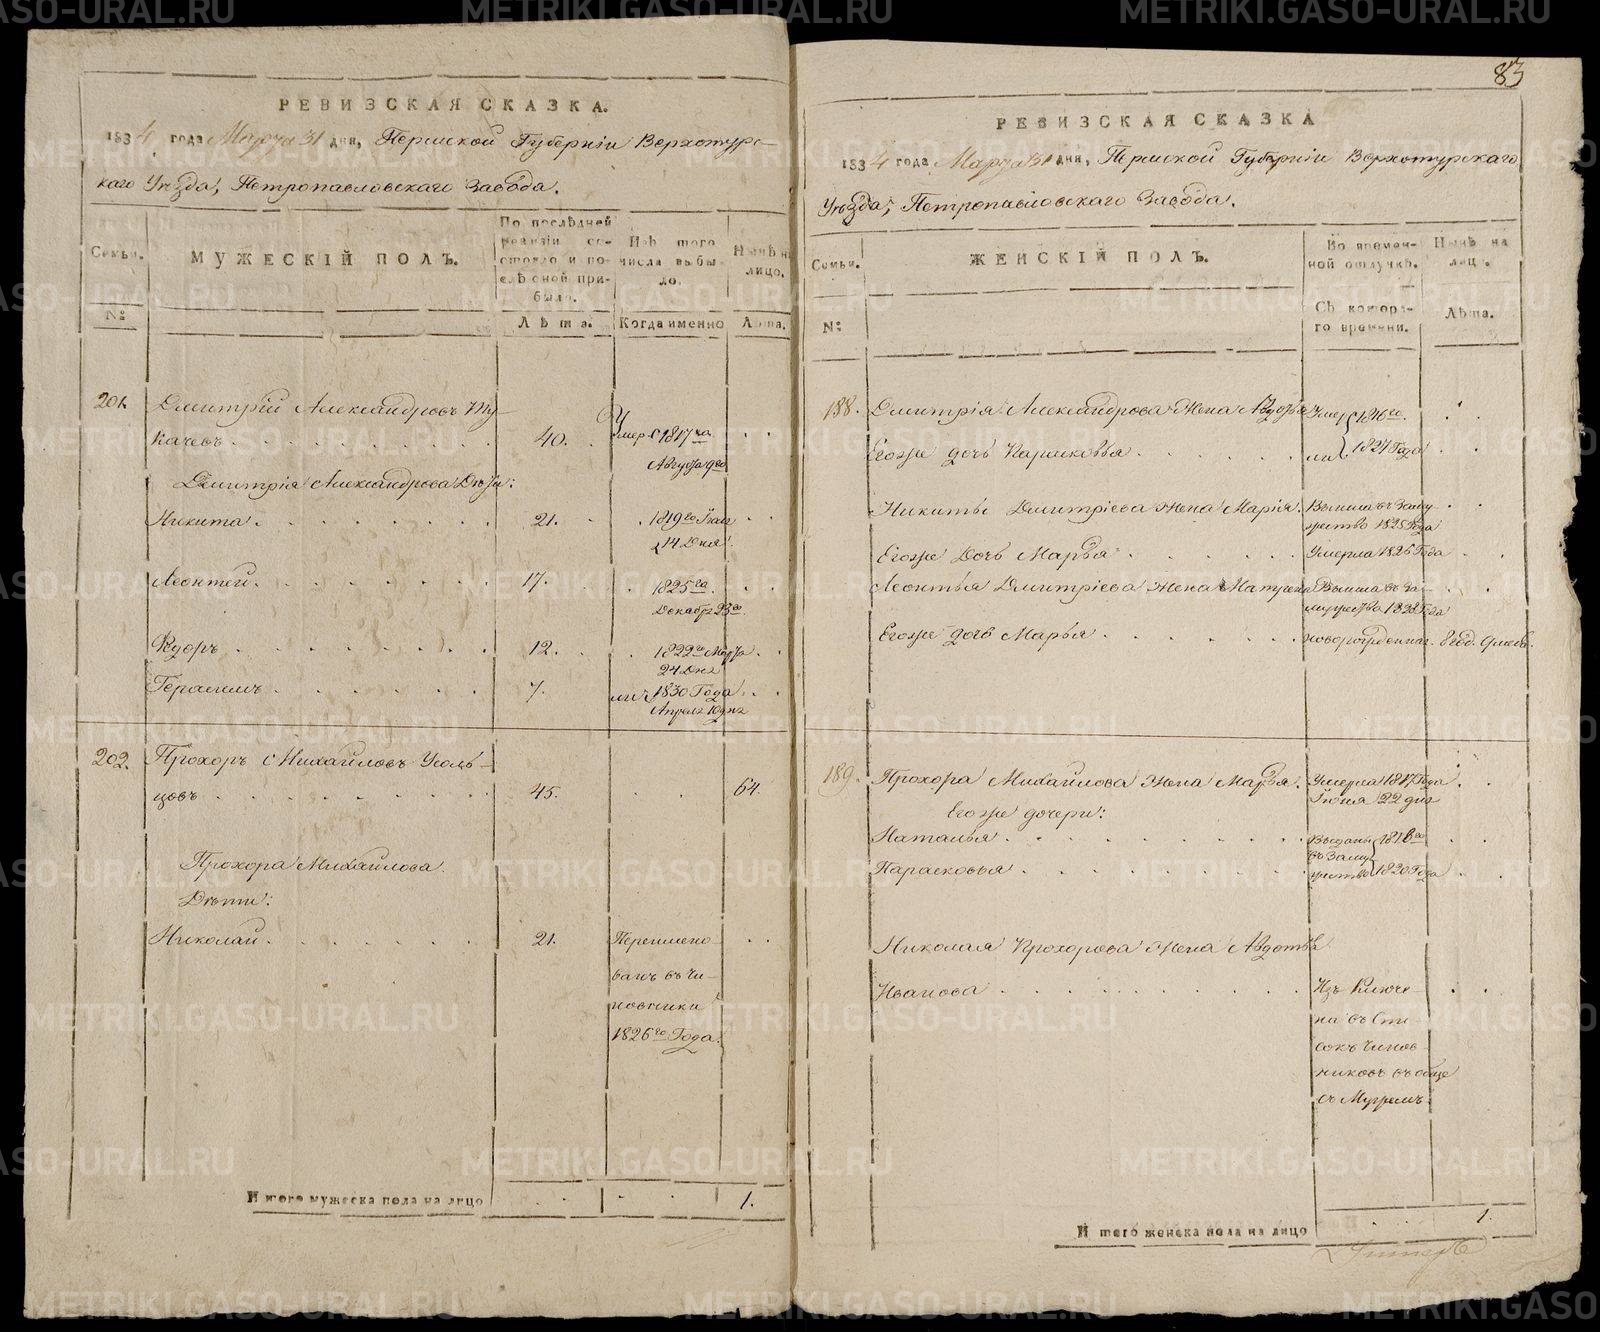 РЕВИЗСКАЯ СКАЗКА.
1834 года Марта 31 дня, Пермской Губернiи Верхотурс-
каго Уѣзда, Петропавловскаго Завода.
Семьи.
МУЖЕСКIЙ ПОЛЪ.
По послѣдней ревизiи состояло и послѣ оной прибыло.
Изъ того числа выбыло.
Нынѣ на лицо.
№
Лѣта.
Когда именно
Лѣта.
201.
Дмитрiй Александровъ Ту-
качевъ
40.
Умер 1817го
Августа 9го
Дмитрiя Александрова Дѣти:
Никита
21.
1819го
14 Дня
Леонтей
17.
1825го
Декабря 23го
Ѳедоръ
12.
1822го Марта
24 Дня
Герасимъ
7.
ли 1830 Года
Апреля 10 дня
202.
Прохоръ Михайловъ Усоль-
цовъ
45.
64.
Прохора Михайлова
Дѣти:
Николай
21.
Переимено-
ванъ въ Чи-
новники
1826го Года.
И того мужеска пола на лицо
1.
83
РЕВИЗСКАЯ СКАЗКА
1834 года Марта 31 дня, Пермской Губернiи Верхотурскаго
Уѣзда, Петропавловскаго Завода.
Семьи.
ЖЕНСКIЙ ПОЛЪ.
Во времен-
ной отлучкѣ.
Нынѣ на
лицо.
№:
Съ котора-
го времени.
Лѣта.
188.
Дмитрiя Александрова Жена Авдотья
Умер 1816го.
Егоже дочь Парасковья
ли 1827 Года
Никиты Дмитрiева Жена Марiя.
Вышла въ Заму-
жество 1825 Года
Егоже Дочь Марья
Умерла 1826 Года
Леонтья Дмитрiева Жена Матрена
Вышла въ За-
мужество 1828 Года
Егоже дочь Марья
новорожденная. 8 год. 9 месяц.
189.
Прохора Михайлова Жена Марья.
Умерла 1817 Года
Iюня 22 дня
Егоже дочери:
Наталья
Выданы
въ Заму-
жество
1816го
Парасковья
1820 Года
Николая Прохорова Жена Авдотья
Иванова
Изключе-
на въ Спи-
сокъ Чинов-
никовъ въ обще
съ Мужемъ.
И того женска пола на лицо
1.
METRIKI.GASO-URAL.RU